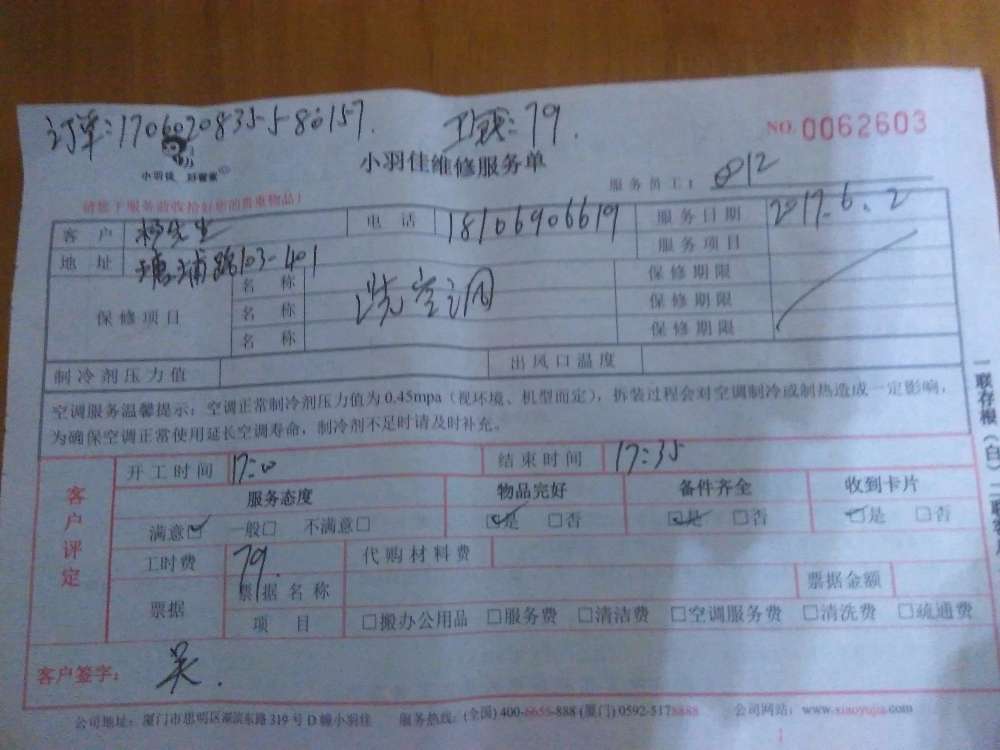 订单:1706020835580157.
79.
NO. 0062603
小羽佳 好管家
小羽佳维修服务单
服务员工: 812
请您于服务前收拾好您的贵重物品!
客户 杨先生 电话 18106906619 服务日期 2017.6.2
地址 塘埔路103-401 服务项目
保修项目 名称 洗空调 保修期限
名称 保修期限
名称 保修期限
制冷剂压力值 出风口温度
空调服务温馨提示: 空调正常制冷剂压力值为0.45mpa (视环境、机型而定), 拆装过程会对空调制冷或制热造成一定影响,
为确保空调正常使用延长空调寿命, 制冷剂不足时请及时补充。
一联存根(白)
客户评定
开工时间 17:00 结束时间 17:35
服务态度 物品完好 备件齐全 收到卡片
满意☑ 一般□ 不满意□ ☑是 □否 ☑是 □否 ☑是 □否
工时费 79. 代购材料费
票据 票据名称 票据金额
项目 □搬办公用品 □服务费 □清洁费 □空调服务费 □清洗费 □疏通费
客户签字: 吴.
公司地址: 厦门市思明区湖滨东路319号D幢小羽佳 服务热线: (全国) 400-6655-888 (厦门) 0592-5178888 公司网站: www.xiaoyujia.com